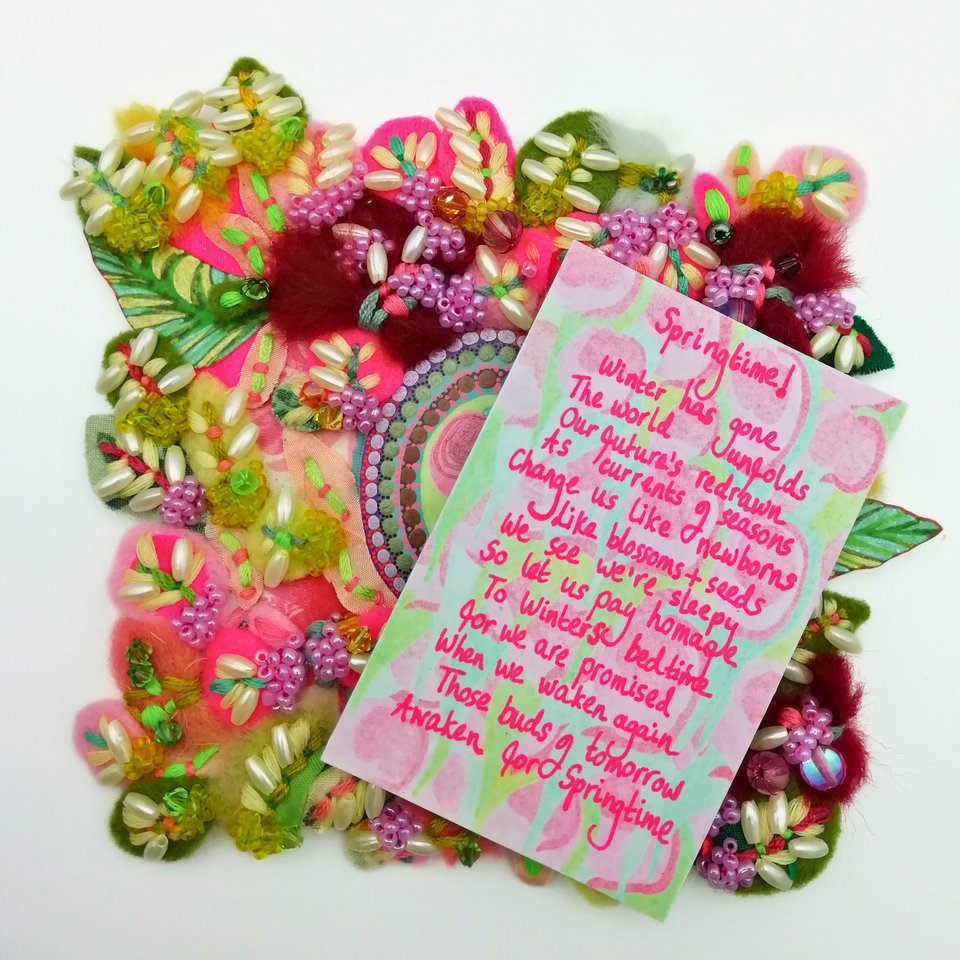 Springtime!
Winter has gone
The world unfolds
Our future's redrawn
As currents of seasons
Change us like newborns
Like blossoms + seeds
We see we're sleepy
So let us pay homage
To Winters bedtime
for we are promised
When we waken again
Those buds of tomorrow
Awaken for Springtime